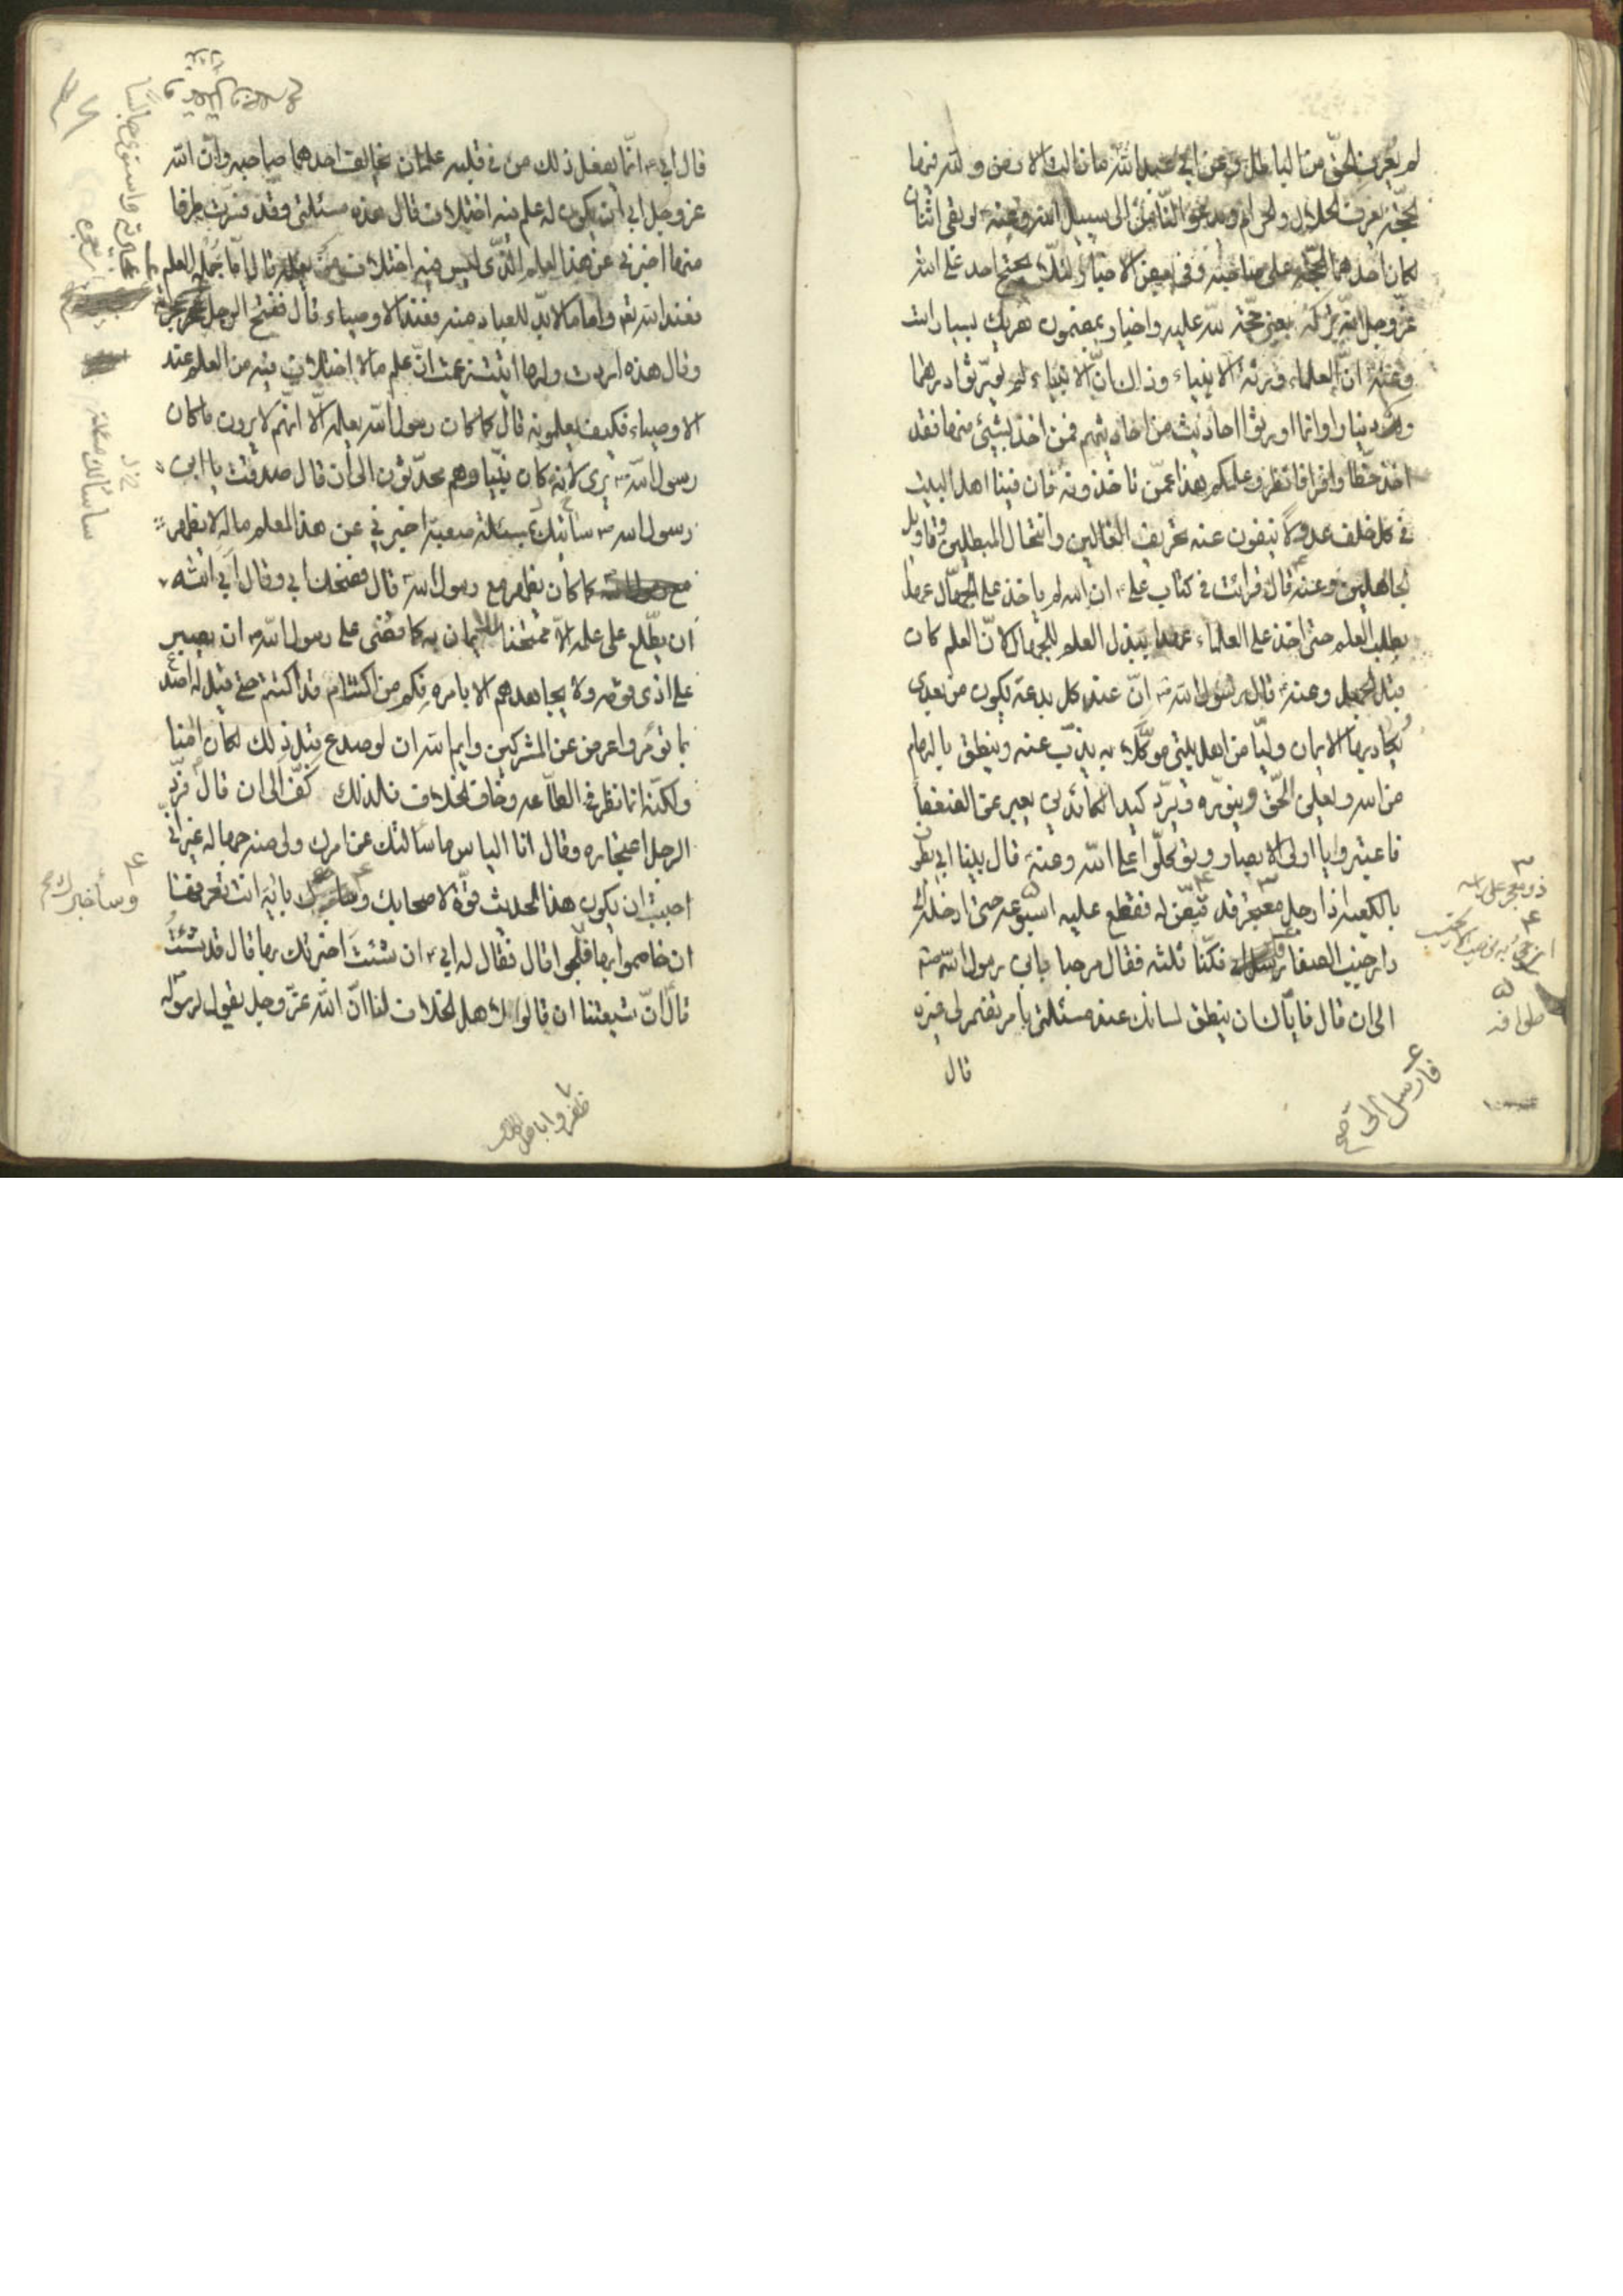 لم يعرف الحق من الباطل وعن ابي عبد الله ما زالت الارض ولله فيها
الحجة يعرف الحلال والحرام ويدعو الناس الى سبيل الله وعنه لو بقى اثنان
لكان احدهما الحجة على صاحبه وفي بعض الاخبار لئلا يحتج احد على الله
عز وجل انه تركه بغير حجة لله عليه واخبار بمضمون
وعنه ان العلماء ورثة الانبياء وذاك ان الانبياء لم يورثوا درهما
ولا دينارا وانما اورثوا احاديث من احاديثهم فمن اخذ بشيء منها فقد
اخذ حظا وافرا فانظروا علمكم هذا عمن تاخذونه فان فينا اهل البيت
في كل خلف عدولا ينفون عنه تحريف الغالين وانتحال المبطلين وتاويل
الجاهلين وعنه قال قرأت في كتاب علي ان الله لم ياخذ على الجهال عهدا
بطلب العلم حتى اخذ على العلماء عهدا ببذل العلم للجهال لان العلم كان
قبل الجهل وعنه قال رسول الله ان عند كل بدعة يكون من بعدي
يكاد بها الايمان وليا من اهل بيتي موكلا به يذب عنه وينطق بالهام
من الله ويعلن الحق وينوره ويرد كيد الكائدين يعبر عن الضعفا
فاعتبروا يا اولى الابصار وتوكلوا على الله وعنه قال بينا ابي يطوف
بالكعبة اذا رجل معتجر قد قيض له فقطع عليه اسبوعه حتى ادخله الى
دار جنب الصفا فكنا ثلثه فقال مرحبا يابن رسول الله
الى ان قال فاياك ان ينطق لسانك عند مسئلتي بامر تضمر لي غيره
قال
طوافه
فارسل الى
قال ابي انما يفعل ذلك من في قلبه علمان يخالف احدهما صاحبه وان الله
عز وجل ابي ان يكون له علم فيه اختلاف قال هذه مسئلتي وقد فسرت طرفا
منها اخبرني عن هذا العلم الذي ليس فيه اختلاف من يعلمه قال اما جملة العلم
فعند الله تعم واما ما لابد للعباد منه فعند الاوصياء قال ففتح الرجل
وقال هذه اردت ولها اتيت زعمت ان علم ما لا اختلاف فيه من العلم عند
الاوصياء فكيف يعلمونه قال كما كان رسول الله يعلمه الا انهم لا يرون ما كان
رسول الله يرى لانه كان نبيا وهم محدثون الى ان قال صدقت يا ابن
رسول الله سأتيك بمسئلة صعبة اخبرني عن هذا العلم ماله لا يظهر
كما كان يظهر مع رسول الله قال فضحك ابي وقال ابي الله
ان يطلع على علمه الا ممتحنا للايمان به كما قضى على رسول الله ان يصبر
على اذى قومه ولا يجاهدهم الا بامره فكم من اكتتام قد اكتتم حتى قيل له اصدع
بما تؤمر واعرض عن المشركين وايم الله ان لو صدع قبل ذلك لكان امنا
ولكنه انما نظر في الطاعه وخاف الخلاف فلذلك كف الى ان قال فرد
الرجل اعتجاره وقال انا الياس ما سالتك عن امرك ولي منه جهاله غير اني
احببت ان يكون هذا الحديث قوة لاصحابك باية انت تعرفها
ان خاصموا بها فلجوا قال فقال له ابي ان شئت اخبرتك بها قال قد شئت
قال ان شيعتنا ان قالوا لاهل الخلاف لنا ان الله عز وجل يقول لرسوله
واستوى جالسا
ساسألك مسئلة
وسأخبرك
ظفروا